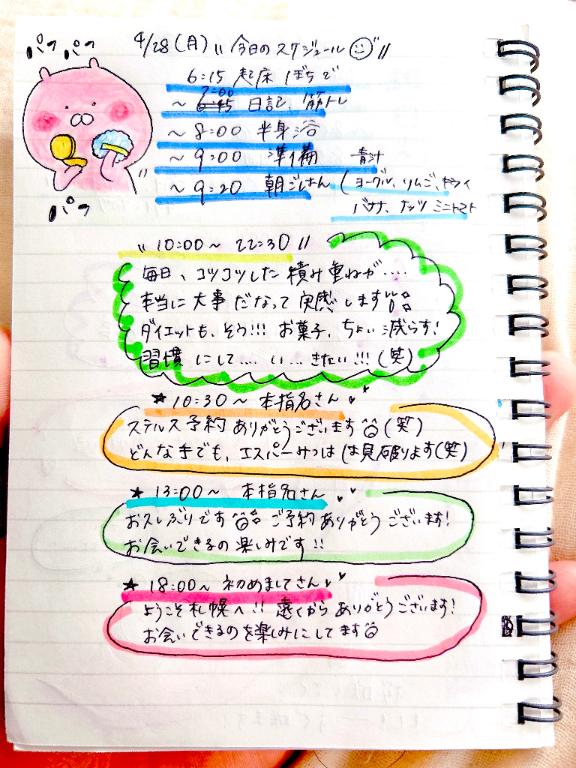 パフ パフ
4/28(月) "今日のスケジュール"
6:15 起床 ぼちで
~ 7:00 日記、筋トレ
~ 8:00 半身浴
~ 9:00 準備 青汁
~ 9:20 朝ごはん (ヨーグル、リンゴ、キウイ
バナナ、ナッツ ミニトマト
パフ
"10:00~22:30"
毎日、コツコツした積み重ねが....
本当に大事だなって実感します
ダイエットも、そう!!! お菓子、ちょい減らす!
習慣にして.... い... きたい!!! (笑)
★10:30~ 本指名さん
ステルス予約ありがとうございます (笑)
どんな手でも、エスパーみつは は見破ります(笑)
★13:00~ 本指名さん
お久しぶりです ご予約ありがとうございます!
お会いできるの楽しみです!!
★18:00~ 初めましてさん
ようこそ札幌へ!! 遠くからありがとうございます!
お会いできるのを楽しみにしてます